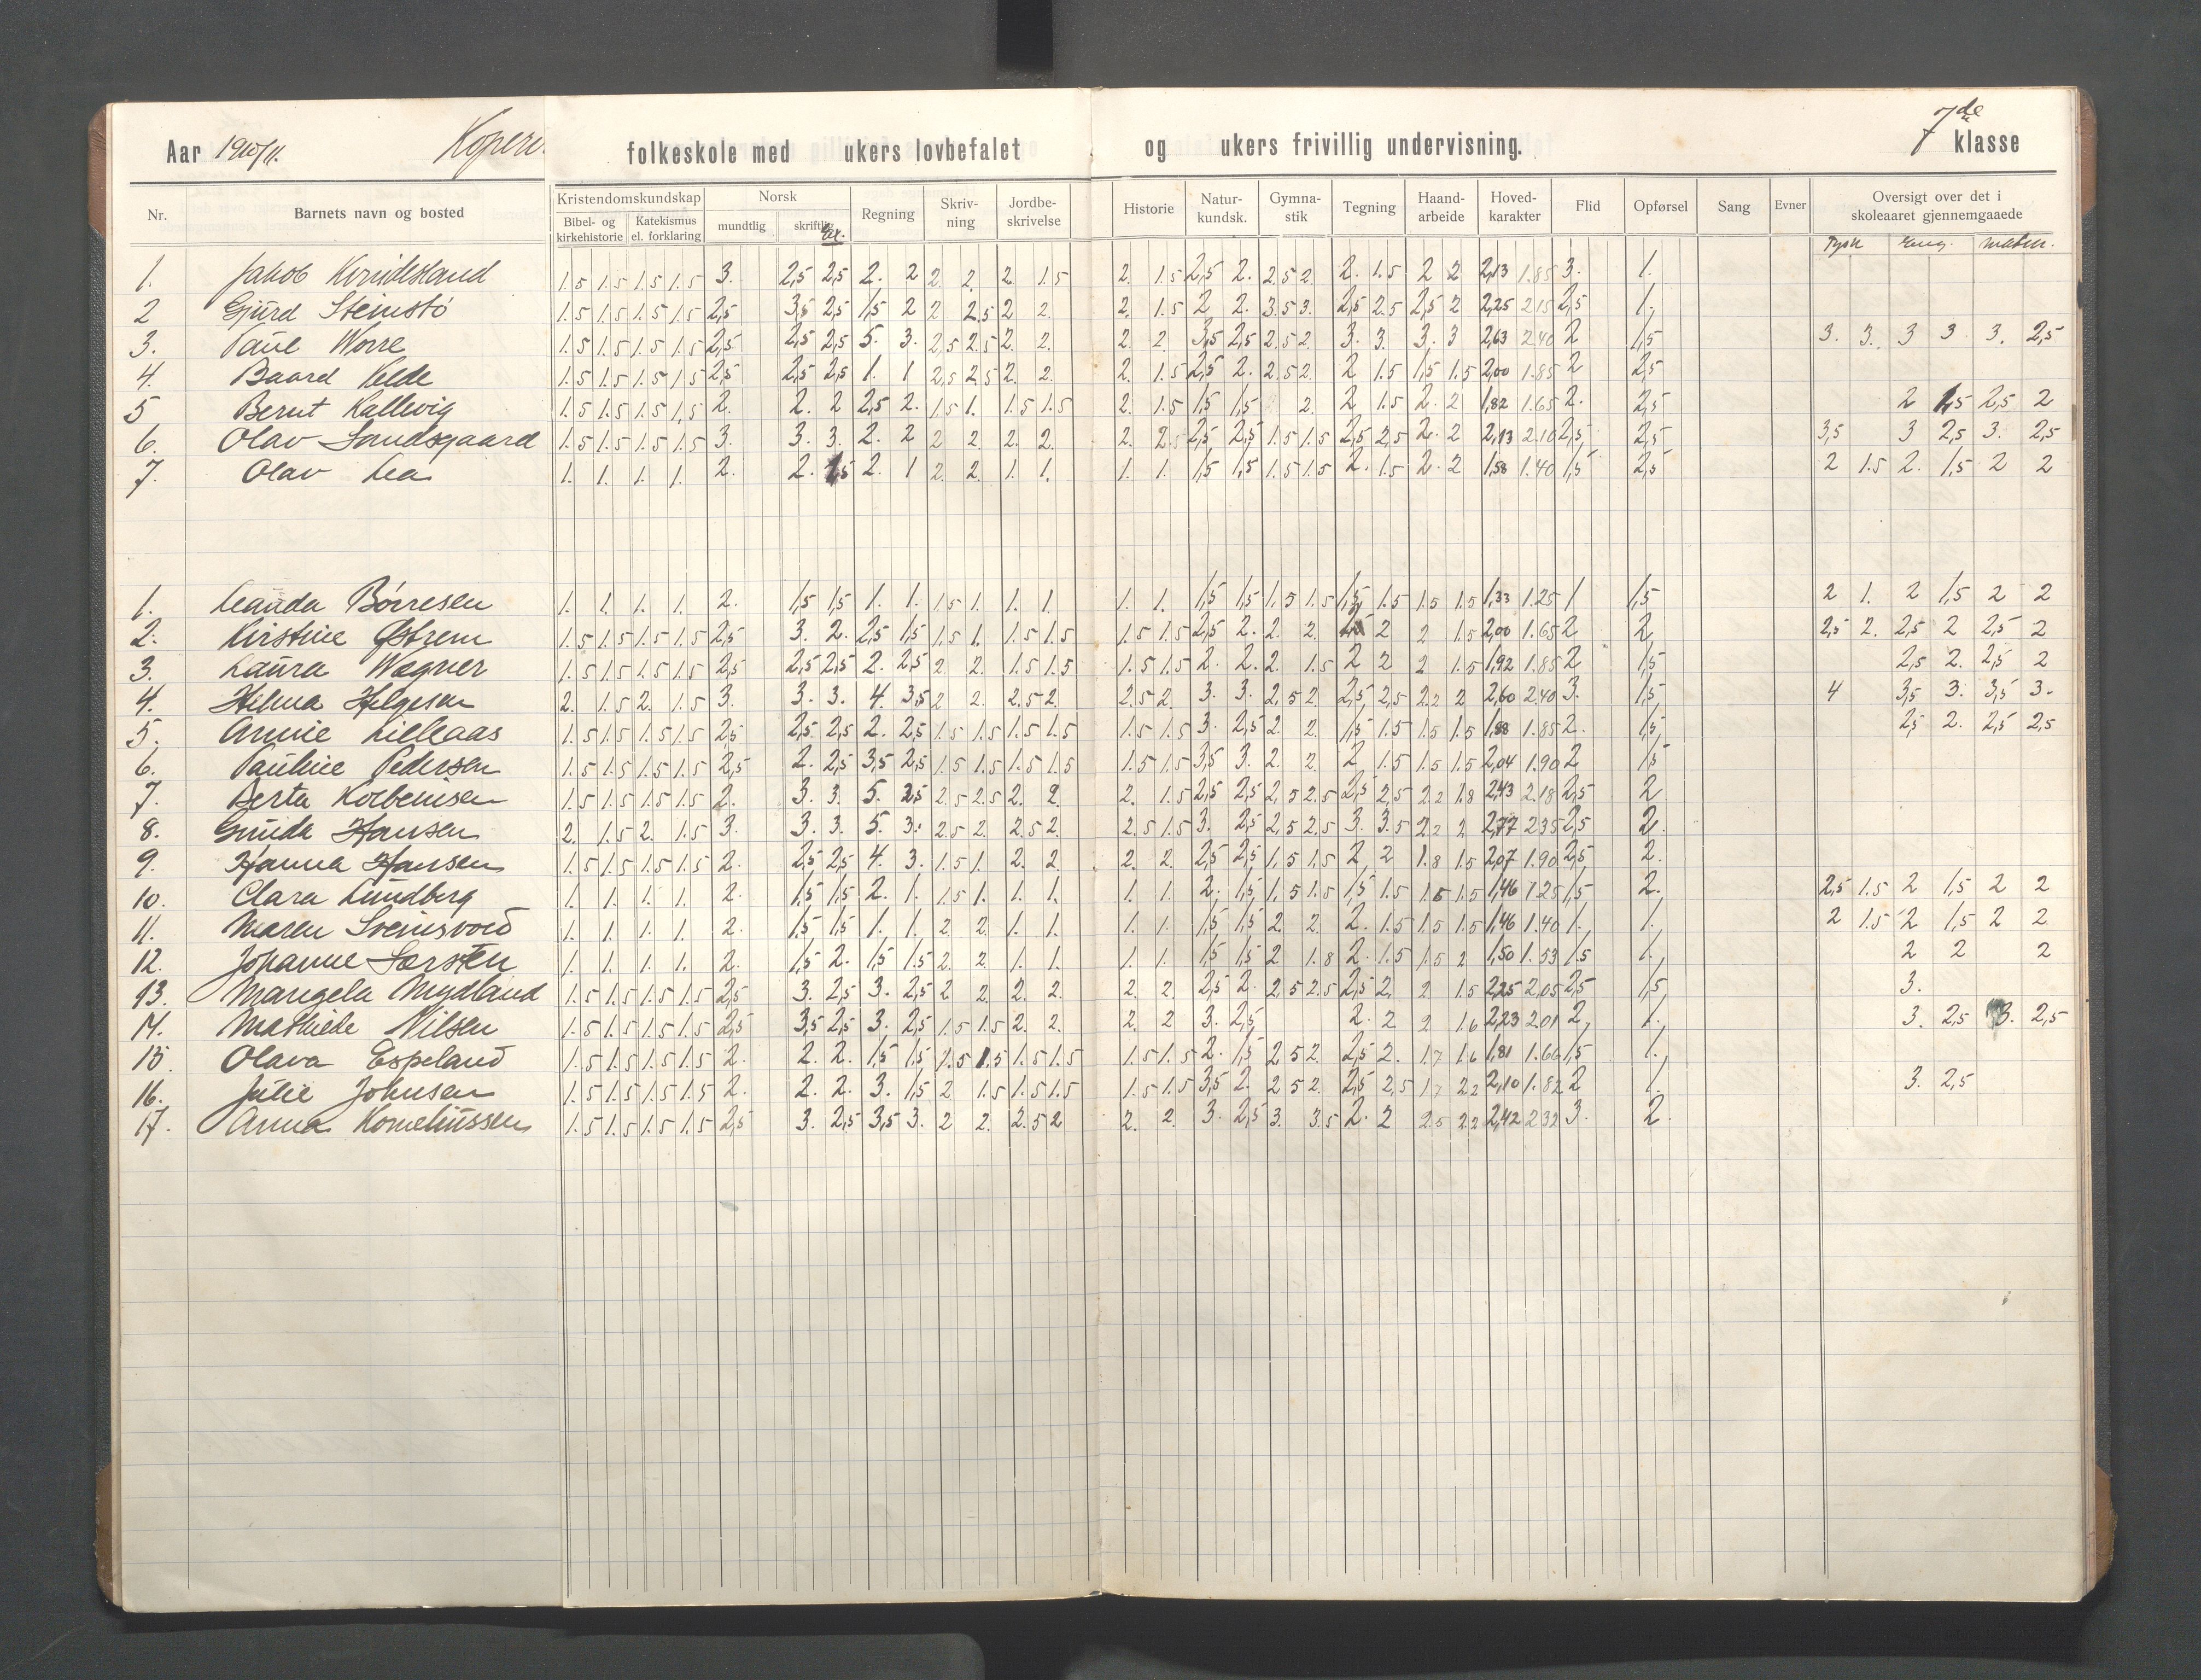 Aar 1910/11. Koperv. folkeskole med ukers lovbefalet og ukers frivillig undervisning. 7de klasse
Nr. Barnets navn og bosted Kristendomskundskap Bibel- og kirkehistorie Katekismus el. forklaring Norsk mundtlig skriftlig Regning Skriv-ning Jordbe-skrivelse Historie Natur-kundsk. Gymna-stik Tegning Haand-arbeide Hoved-karakter Flid Opførsel Sang Evner Oversigt over det i skoleaaret gjennemgaaede
Tysk Eng. Matem.
1. Jakob Kvindesland 1.5 1.5 1.5 1.5 3. 2,5 2,5 2. 2 2 2. 2 1.5 2. 1.5 2,5 2. 2.5 2. 2. 1.5 2 2 2,13 1.85 3. 1.
2 Gjurd Steinstø 1.5 1.5 1.5 1.5 2,5 3,5 2,5 1,5 2 2 2.5 2 2. 2. 1.5 2 2. 3.5 3. 2,5 2.5 2,5 2 2,25 2.15 2,5 1.
3. Paul Worre 1.5 1.5 1.5 1.5 2,5 2,5 2,5 5. 3. 2,5 2.5 2. 2. 2. 2. 3,5 2,5 2.5 2. 3. 3. 3. 3 2,63 2.40 2 1,5 3. 3. 3 3 3. 2,5
4. Baard Velde 1.5 1.5 1.5 1.5 2,5 2,5 2,5 1. 1 2,5 2.5 2. 2. 2. 1.5 2,5 2. 2.5 2. 2 1.5 1,5 1.5 2,00 1.85 2 2,5
5 Bernt Kallevig 1.5 1.5 1.5 1,5 2. 2. 2 2,5 2. 1.5 1. 1.5 1.5 2. 1.5 1,5 1,5 2. 2 1.5 2. 2 1,82 1.65 2. 2,5 2 1,5 2,5 2
6. Olav Sundsgaard 1.5 1.5 1.5 1.5 3. 3. 3. 2. 2 2 2. 2. 2. 2. 2 2,5 2,5 1.5 1.5 2,5 2,5 2. 2 2,13 2.10 2,5 2,5 3,5 3 2,5 3. 2,5
7. Olav Lea 1. 1. 1. 1. 2. 2. 1,5 2. 1 2. 2. 1. 1. 1. 1. 1,5 1,5 1.5 1.5 2. 1.5 2. 2 1,58 1.40 1,5 2,5 2 1.5 2. 1,5 2 2
1. Børresen 1. 1. 1. 1. 2. 1,5 1,5 1. 1. 1.5 1. 1. 1. 1. 1. 1,5 1,5 1.5 1.5 1,5 1.5 1.5 1.5 1,33 1.25 1 1,5 2 1. 2 1,5 2 2
2. Kirstine Østrem 1.5 1.5 1.5 1.5 2,5 3. 2. 2,5 1,5 1.5 1. 1.5 1.5 1.5 1.5 2,5 2. 2. 2. 2 2 1.5 2,00 1.65 2 2 2,5 2. 2,5 2 2,5 2
3. Laura Wagner 1.5 1.5 1.5 1.5 2,5 2,5 2,5 2. 2,5 2 2. 1.5 1.5 1.5 1.5 2. 2. 2. 1.5 2 2 2 1.5 1,92 1.85 2 1,5 2,5 2. 2,5 2
4. Helma Helgesen 2. 1.5 2. 1.5 3. 3. 3. 4. 3,5 2 2. 2.5 2. 2.5 2. 3. 3. 2,5 2. 2,5 2,5 2.2 2 2,60 2.40 3. 1,5 4 3,5 3. 3,5 3.
5. Annie Lilleaas 1.5 1.5 1.5 1.5 2,5 2,5 2,5 2. 2,5 1.5 1.5 1.5 1.5 1.5 1.5 3. 2,5 2. 2. 1,5 1.5 1.5 1.5 1,88 1.85 2. 1,5 2,5 2. 2,5 2,5
6. Pauline Pedersen 1.5 1.5 1.5 1.5 2,5 2. 2,5 3,5 2,5 1.5 1.5 1.5 1.5 1.5 1.5 3,5 3. 2. 2. 2 1.5 1.5 1.5 2,04 1.90 2 1,5
7. Berta Kolbeinsen 1.5 1.5 1.5 1.5 2. 3. 3. 5. 3,5 2.5 2.5 2. 2. 2. 1.5 2,5 2,5 2,5 2.5 2,5 2,5 2.2 1.8 2,43 2.18 2,5 2
8. Gunda Hansen 2. 1.5 2. 1.5 3. 3. 3. 5. 3. 2.5 2. 2.5 2. 2.5 1.5 3. 2,5 2,5 2.5 3. 3.5 2.2 2 2,77 2.35 2,5 2.
9. Hanna Hansen 1.5 1.5 1.5 1.5 2. 2,5 2,5 4. 3. 1.5 1. 2. 2. 2. 2. 2,5 2,5 1.5 1.5 2 2 1.8 1.5 2,07 1.90 2,5 2.
10. Clara Lundberg 1. 1. 1. 1. 2. 1,5 1,5 2. 1. 1.5 1. 1. 1. 1. 1. 2. 1,5 1.5 1.5 1,5 1.5 1.5 1.5 1,46 1.25 1,5 2. 2,5 1.5 2 1,5 2 2
11. Maren 1. 1. 1. 1. 2. 1,5 1,5 1. 1. 2 2. 1. 1. 1. 1. 1,5 1,5 2. 2. 2. 1.5 1.5 1.5 1,46 1.40 1. 1. 2 1.5 2 1,5 2 2
12. Johanne Sørsten 1. 1. 1. 1. 2. 1,5 2. 1,5 1.5 2 2. 1. 1. 1. 1. 1,5 1,5 2 1.8 2. 1.5 1.5 2 1,50 1.53 1.5 1. 2 2 2
13. Mangela Mydland 1.5 1.5 1.5 1.5 2,5 3. 2,5 3. 2,5 2 2. 2. 2. 2. 2 2,5 2. 2,5 2.5 2,5 2. 2 1.5 2,25 2.05 2,5 1,5 3.
14. Mathilde Nilsen 1.5 1.5 1.5 1.5 2,5 3,5 2,5 3. 2,5 1.5 1.5 2. 2. 2. 2 3. 2,5 2. 2 2 1.6 2,23 2.01 2, 1. 3. 2,5 3. 2,5
15. Olava Espeland 1.5 1.5 1.5 1.5 2. 2. 2. 1,5 1,5 1.5 1.5 1.5 1.5 1.5 1.5 2. 1,5 2.5 2. 2,5 2. 1.7 1.6 1,81 1.66 1,5 1.
16. Julie Johnsen 1.5 1.5 1.5 1.5 2. 2. 2. 3. 1,5 2 1.5 1.5 1.5 1.5 1.5 3,5 2. 2.5 2. 2,5 2,5 1.7 2.2 2,10 1.82 2 1. 3. 2,5
17. Anna Korneliussen 1.5 1.5 1.5 1.5 2,5 3. 2,5 3,5 3. 2 2. 2.5 2 2. 2. 3. 2,5 3. 3.5 2. 2 2.5 2.2 2,42 2.32 3. 2.